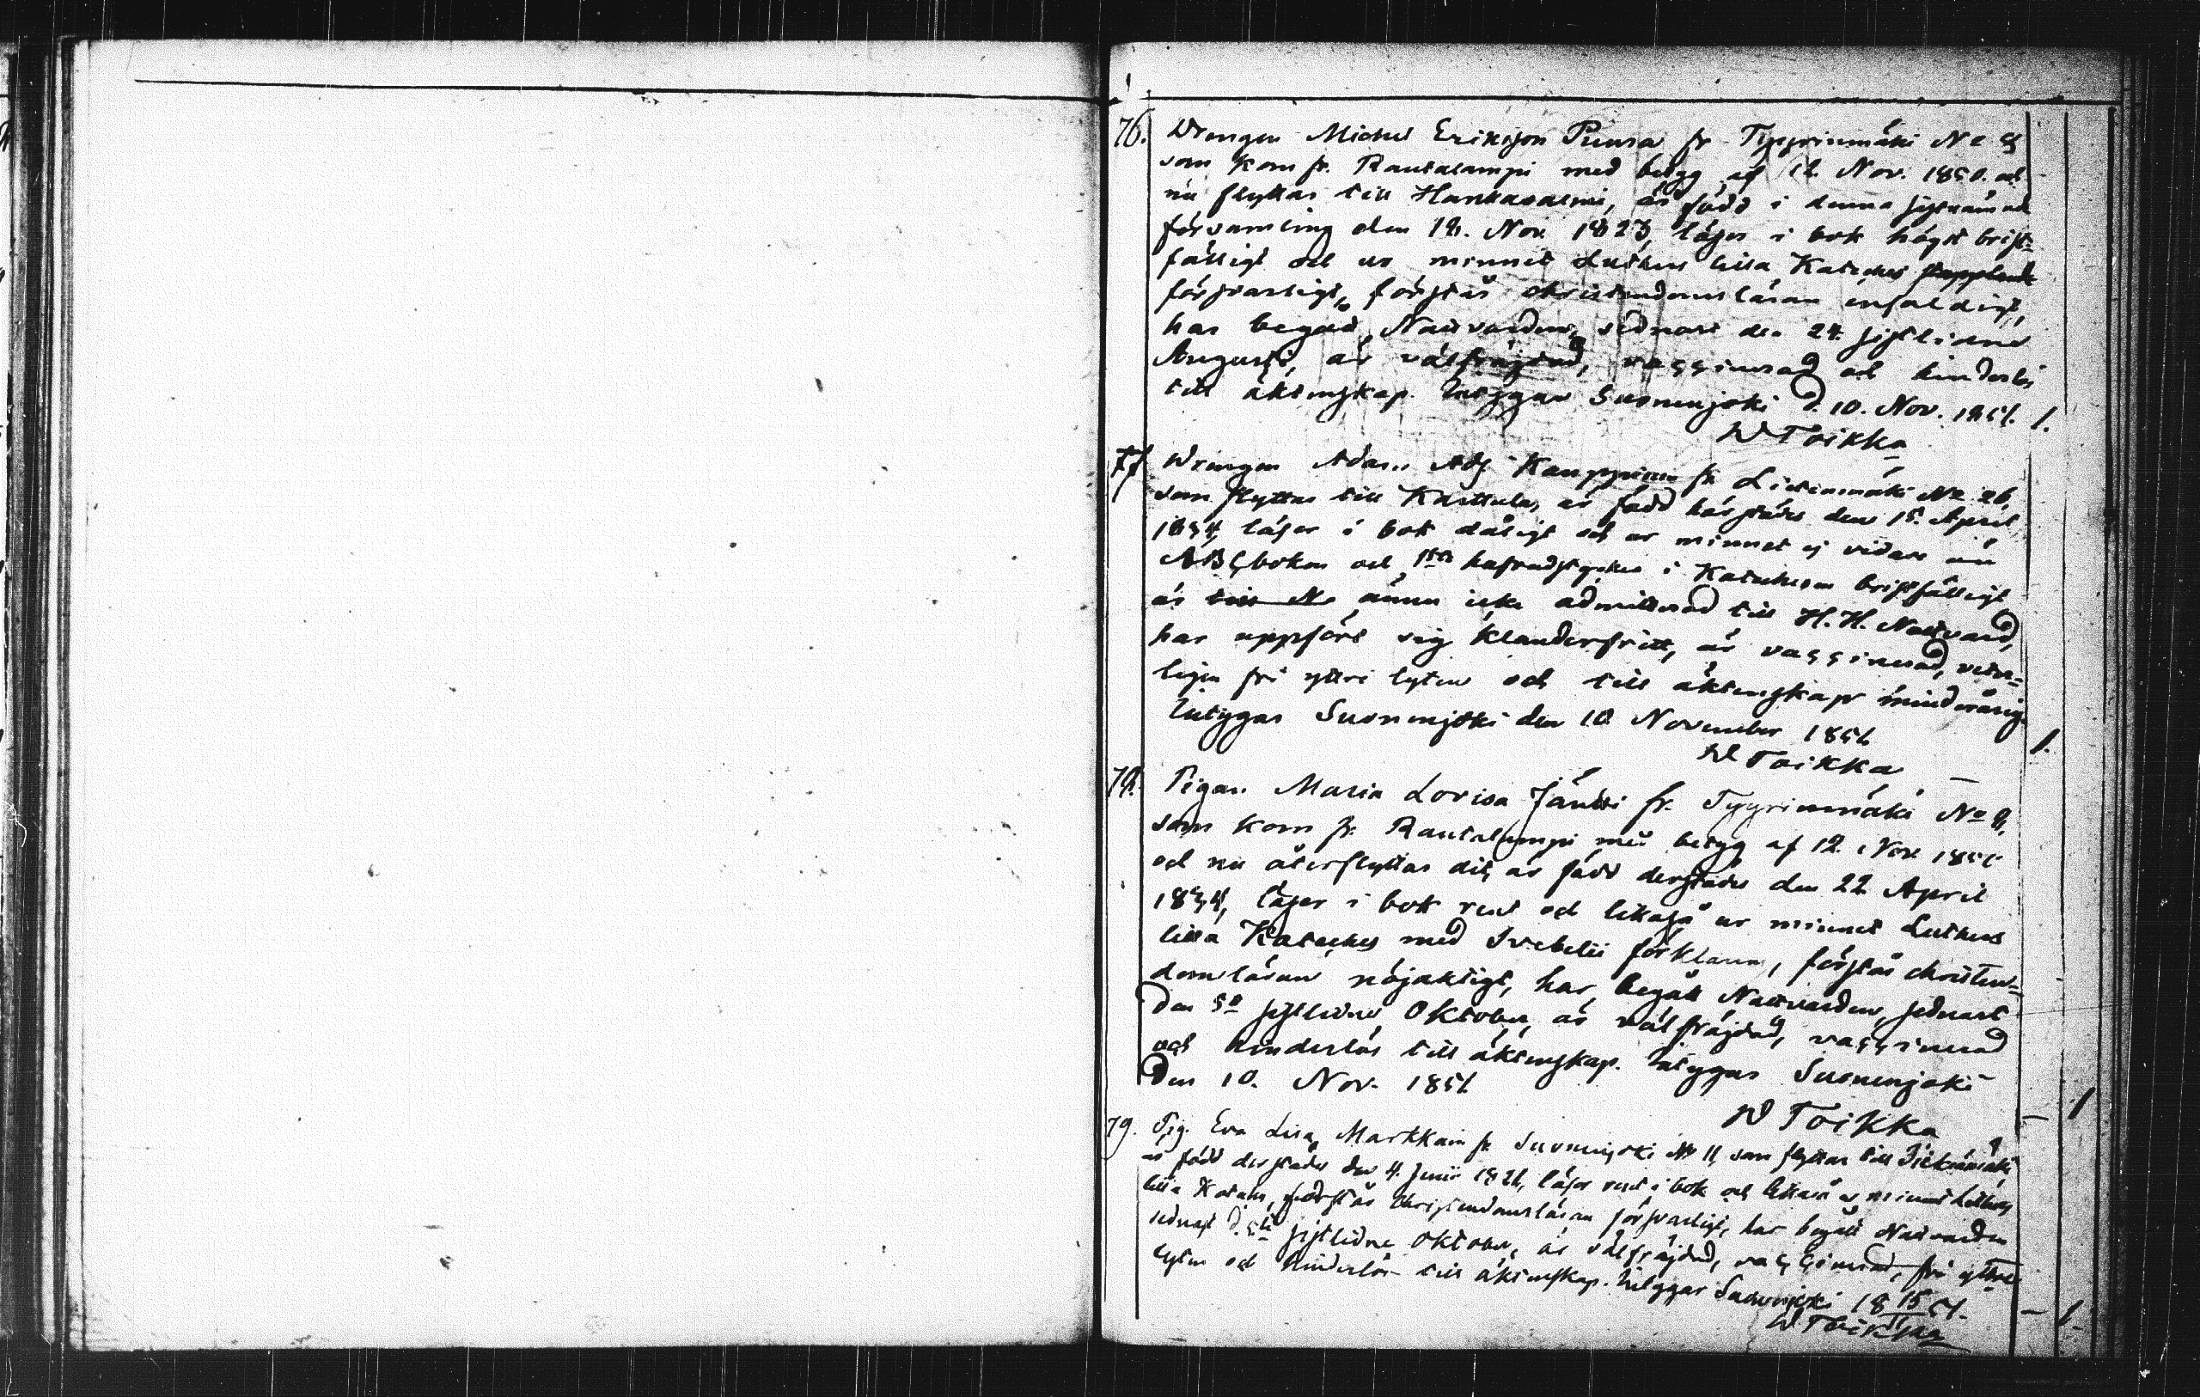 76. Drengen Michel Eriksson Puura fr. Tyyrinmäki No 9
som kom fr. Rautalampi med betyg af 12. Nov. 1850. och
nu flyttar till Hankasalmi, är född i denna sistnämnd
församling den 18. Nov. 1823, läser i bok högst brist-
fälligt och ur minnet Luthers lilla Kateches
försvarligt, förstår christendomsläran enfaldigt,
har begått Nattvarden sednast den 24 sistlidne
Augusti, är välfrejdad, vaccinerad och hinderlös
till äktenskap. Intygar Suonenjoki d. 10. Nov. 1851. 1.
W Toikka
77 Drengen Adam Ad. Kauppinen fr. Lietenmäki No 26,
som flyttar till Karttula, är född härstädes den 15. April
1834, läser i bok dåligt och ur minnet ej vidare än
ABCboken och 1sta hufvudstycket i Katechesen bristfälligt
är ännu icke admitterad till H.H. Nattvard,
har uppfört sig klanderfritt, är vaccinerad, veter-
ligen fri yttre lyten och till äktenskap minderårig.
Intygar Suonenjoki den 10 November 1851 1.
W Toikka
78. Pigan Maria Lovisa Jäntti fr. Tyyrinmäki No 9,
som kom fr. Rautalampi med betyg af 12. Nov. 1850
och nu återflyttar dit, är född derstädes den 22 April
1834, läser i bok rent och likaså ur minnet Luthers
lilla Kateches med Svebelii förklaring, förstår christen-
domsläran nöjaktigt, har begått Nattvarden sednast
den 5e sistlidne Oktober, är välfrejdad, vaccinerad
och hinderlös till äktenskap. Intygar Suonenjoki
den 10. Nov. 1851
W Toikka — 1
79. Pig. Eva Lisa Markkain fr. Suonenjoki No 11, som flyttar till Pieksämäki,
är född derstädes den 4. Junii 1821, läser rent i bok och likaså ur minnet Luthers
lilla Kateches, förstår Christendomsläran försvarligt, har begått Nattvarden
sednast d. 5te sistlidne Oktober, är välfrejdad, vaccinerad, fri yttre
lyten och hinderlös till äktenskap. Intygar Suonenjoki 18 15/11 51. — 1.
W Toikka